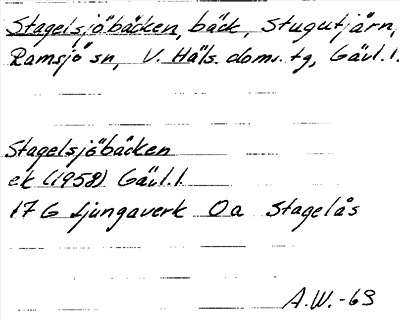 Stagelsjöbäcken, bäck, Stugutjärn,
Ramsjö sn, V. Häls. doms. tg, Gävl. l.
Stagelsjöbäcken
ek (1958) Gävl. l
17 G Ljungaverk 0a Stagelås
A.W.-63